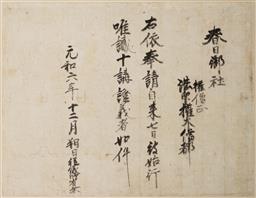 春日御社
権僧正
法印権大僧都
右依奉請自来七日被始行
唯識十講證義者如件
元和六年十二月朔日